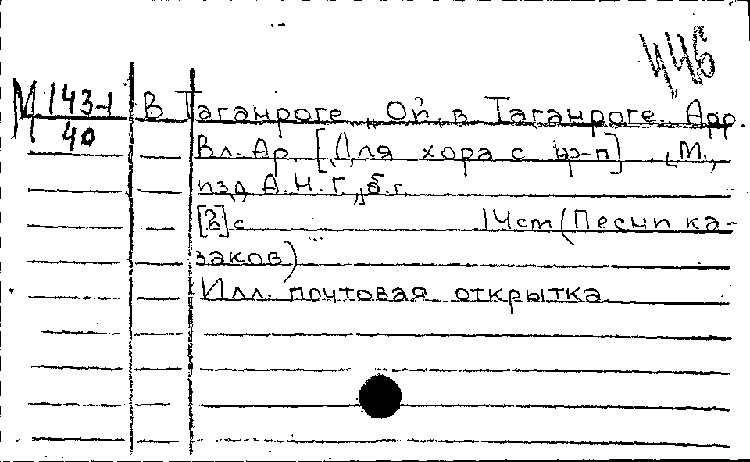 446
М 143-1
40
В Таганроге. „Ой, в Таганроге. Арр.
Вл. Ар. [Для хора с ф-п] „М.,
изд. А.Н.Г., б.г.
[2]с 14см (Песни ка-
заков)
Илл. почтовая открытка